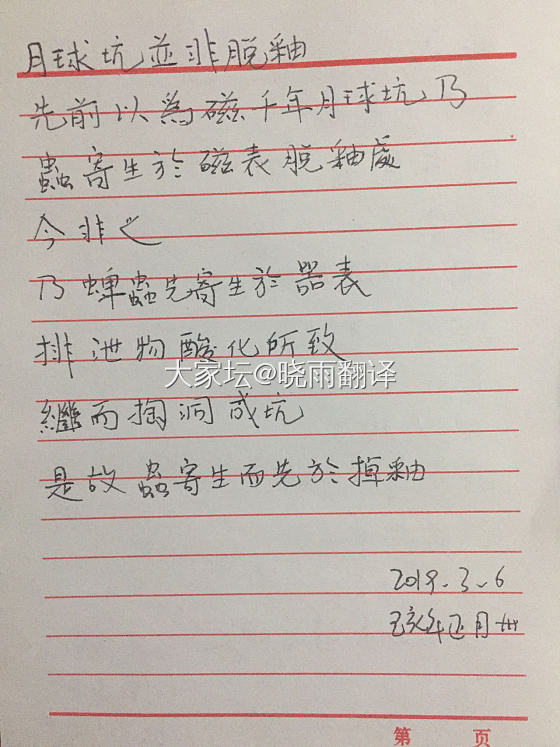 月球坑並非脫釉
先前以為磁千年月球坑乃
蟲寄生於磁表脫釉處
今非也
乃蟬蟲先寄生於器表
排泄物酸化所致
大家坛@晓雨翻译
繼而掏洞成坑
是故蟲寄生而先於掉釉
2019.3.6
己亥年正月卅
第 页